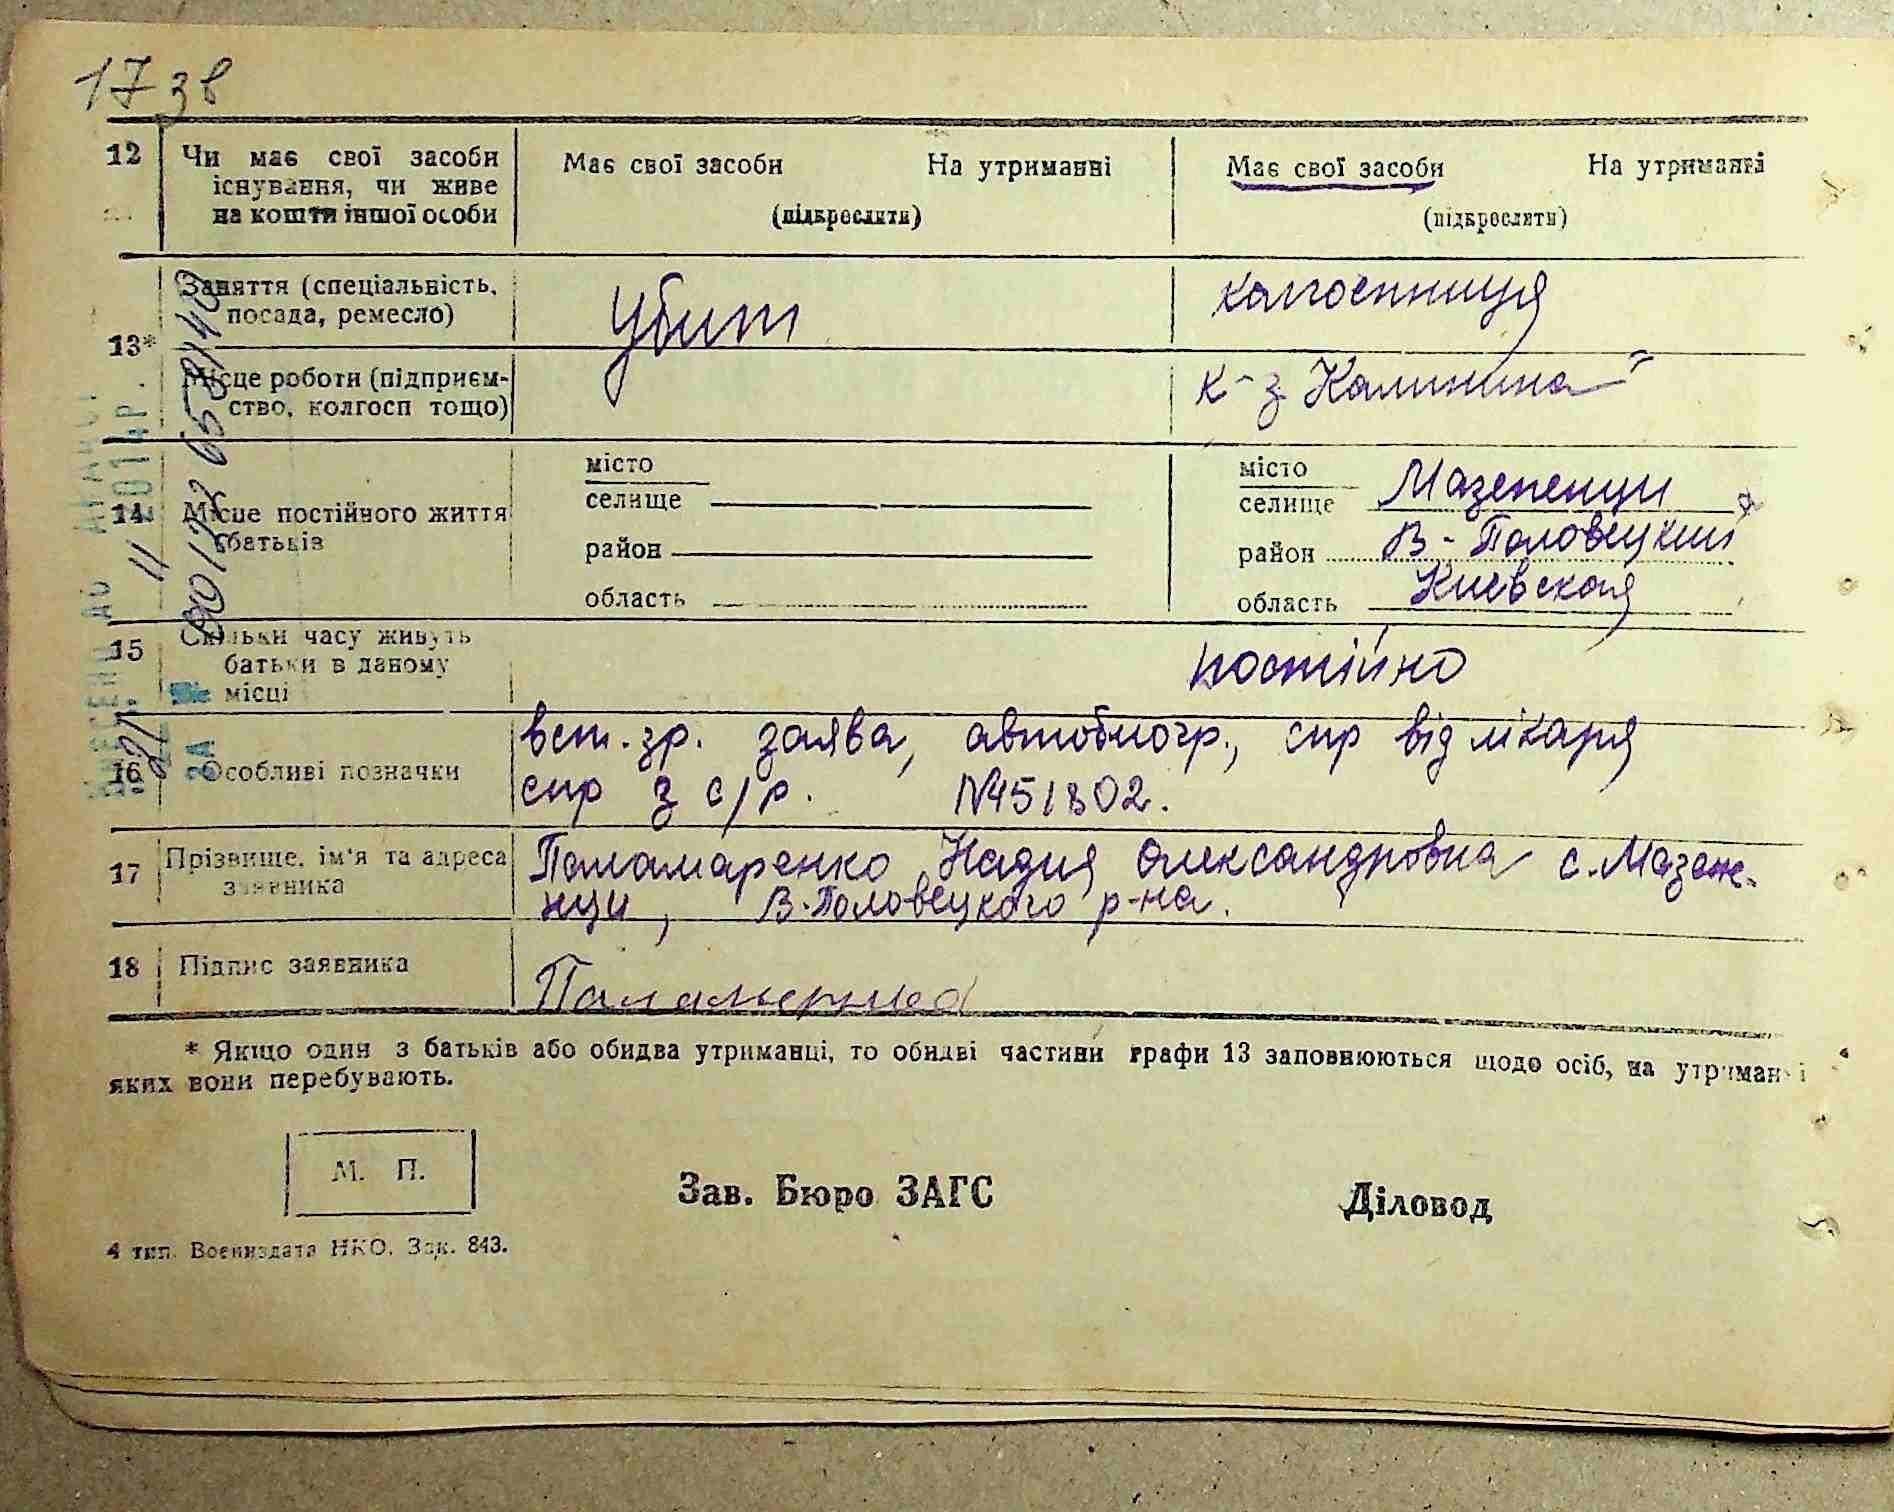 17 зв
12 Чи має свої засоби існування, чи живе на кошти іншої особи
Має свої засоби На утриманні
(підкреслити)
Має свої засоби На утриманні
(підкреслити)
13*
Заняття (спеціальність, посада, ремесло)
Убит
колгоспниця
Місце роботи (підприєм-
ство, колгосп тощо)
к-з Калинина"
14 Місце постійного життя батьків
місто
селище
район
область
місто
селище Мазепенци
район В-Половецкий
область Киевская
15 Скільки часу живуть
батьки в даному
місці
постійно
16 Особливі позначки
вст. зр. заява, автобиогр., спр від лікаря
спр з с/р. №451302.
17 Прізвище, ім'я та адреса
заявника
Паламаренко Надия Олександровна с. Мазепе-
нци, В-Половецкого р-на.
18 Підпис заявника
* Якщо один з батьків або обидва утриманці, то обидві частини графи 13 заповнюються щодо осіб, на утриманні
яких вони перебувають.
М. П.
Зав. Бюро ЗАГС
Діловод
4 тип. Воениздата НКО. Зак. 843.